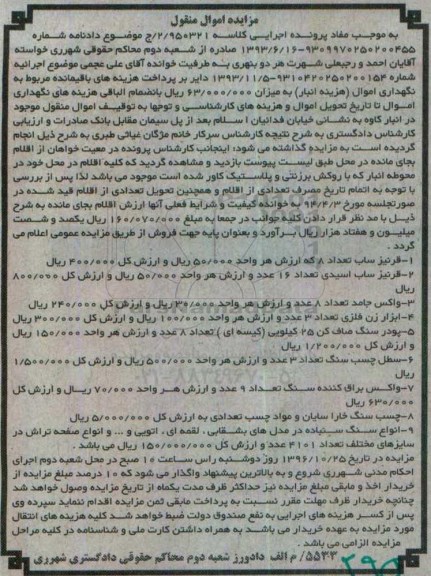 مزایده اموال منقول
به موجب مفاد پرونده اجرایی کلاسه ۲/۹۵۰۳۲۱/ج موضوع دادنامه شماره
۹۳۰۹۹۷۰۲۵۰۲۰۰۴۵۵-۱۳۹۳/۶/۱۶ صادره از شعبه دوم محاکم حقوقی شهرری خواسته
آقایان احمد و رجبعلی شهرت هر دو بنهری به طرفیت خوانده آقای علی عجمی موضوع اجرائیه
شماره ۹۳۱۰۴۲۰۲۵۰۲۰۰۱۵۴-۱۳۹۳/۱۱/۵ دایر بر پرداخت هزینه های باقیمانده مربوط به
نگهداری اموال (هزینه انبار) به میزان ۶۳/۰۰۰/۰۰۰ ریال بانضمام الباقی هزینه های نگهداری
اموال تا تاریخ تحویل اموال و هزینه های کارشناسی و توجها به توقیف اموال منقول موجود
در انبار کاوه به نشانی خیابان فدائیان اسلام بعد از پل سیمان مقابل بانک صادرات و ارزیابی
کارشناس دادگستری به شرح نتیجه کارشناس سرکار خانم مژگان غیاثی طبری به شرح ذیل انجام
گردیده است به مزایده گذاشته می شود: اینجانب کارشناس پرونده در معیت خواهان از اقلام
بجای مانده در محل طبق لیست پیوست بازدید و مشاهده گردید که کلیه اقلام در محل خود در
محوطه انبار که با روکش برزنتی و پلاستیک کاور شده است موجود می باشد لذا پس از بررسی
با توجه به اتمام تاریخ مصرف تعدادی از اقلام و همچنین تحویل تعدادی از اقلام قید شده در
صورتجلسه مورخ ۹۴/۴/۳ به خوانده کیفیت و شرایط فعلی آنها ارزش اقلام بجای مانده به شرح
ذیل با مد نظر قرار دادن کلیه جوانب در جمعا به مبلغ ۱۶۰/۰۷۰/۰۰۰ ریال یکصد و شصت
میلیون و هفتاد هزار ریال برآورد و بعنوان پایه جهت فروش از طریق مزایده عمومی اعلام می
گردد .
۱-قرنیز ساب تعداد ۸ که ارزش هر واحد ۵۰/۰۰۰ ریال و ارزش کل ۴۰۰/۰۰۰ ریال
۲-قرنیز ساب اسیدی تعداد ۱۶ عدد و ارزش هر واحد ۵۰/۰۰۰ ریال و ارزش کل ۸۰۰/۰۰۰
ریال
۳-واکس جامد تعداد ۸ عدد و ارزش هر واحد ۳۰/۰۰۰ ریال و ارزش کل ۲۴۰/۰۰۰ ریال
۴-ابزار زن فلزی تعداد ۳ عدد و ارزش هر واحد ۱۰۰/۰۰۰ ریال و ارزش کل ۳۰۰/۰۰۰ ریال
۵-پودر سنگ صاف کن ۲۵ کیلویی (کیسه ای) تعداد ۸ عدد و ارزش هر واحد ۱۵۰/۰۰۰ ریال
و ارزش کل ۱/۲۰۰/۰۰۰ ریال
۶-سطل چسب سنگ تعداد ۳ عدد و ارزش هر واحد ۵۰۰/۰۰۰ ریال و ارزش کل ۱/۵۰۰/۰۰۰
ریال
۷-واکس براق کننده سنگ تعداد ۹ عدد و ارزش هر واحد ۷۰/۰۰۰ ریال و ارزش کل
۶۳۰/۰۰۰ ریال
۸-چسب سنگ خارا سایان و مواد چسب تعدادی به ارزش کل ۵/۰۰۰/۰۰۰ ریال
۹-انواع سنگ سنباده در مدل های بشقابی ، لقمه ای ، اتویی و ... و انواع صفحه تراش در
سایزهای مختلف تعداد ۴۱۰۱ عدد و ارزش کل ۱۵۰/۰۰۰/۰۰۰ ریال می باشد .
مزایده در تاریخ ۱۳۹۶/۱۰/۲۵ روز دوشنبه راس ساعت ۱۰ صبح در محل شعبه دوم اجرای
احکام مدنی شهرری شروع و به بالاترین پیشنهاد واگذار می شود که ۱۰ درصد مبلغ مزایده از
خریدار اخذ و مابقی مبلغ مزایده نیز حداکثر ظرف مدت یکماه از تاریخ مزایده وصول خواهد شد
چنانچه خریدار ظرف مهلت مقرر نسبت به پرداخت مابقی ثمن مزایده اقدام ننماید سپرده وی
پس از کسر هزینه های اجرایی به نفع صندوق دولت ضبط خواهد شد کلیه هزینه های انتقال
مورد مزایده به عهده خریدار می باشد به همراه داشتن کارت ملی و شناسنامه در کلیه مراحل
مزایده الزامی می باشد .
۵۵۳۳/م الف دادورز شعبه دوم محاکم حقوقی دادگستری شهرری